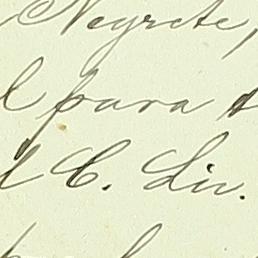 Negrete,
l para
l C. Liv.